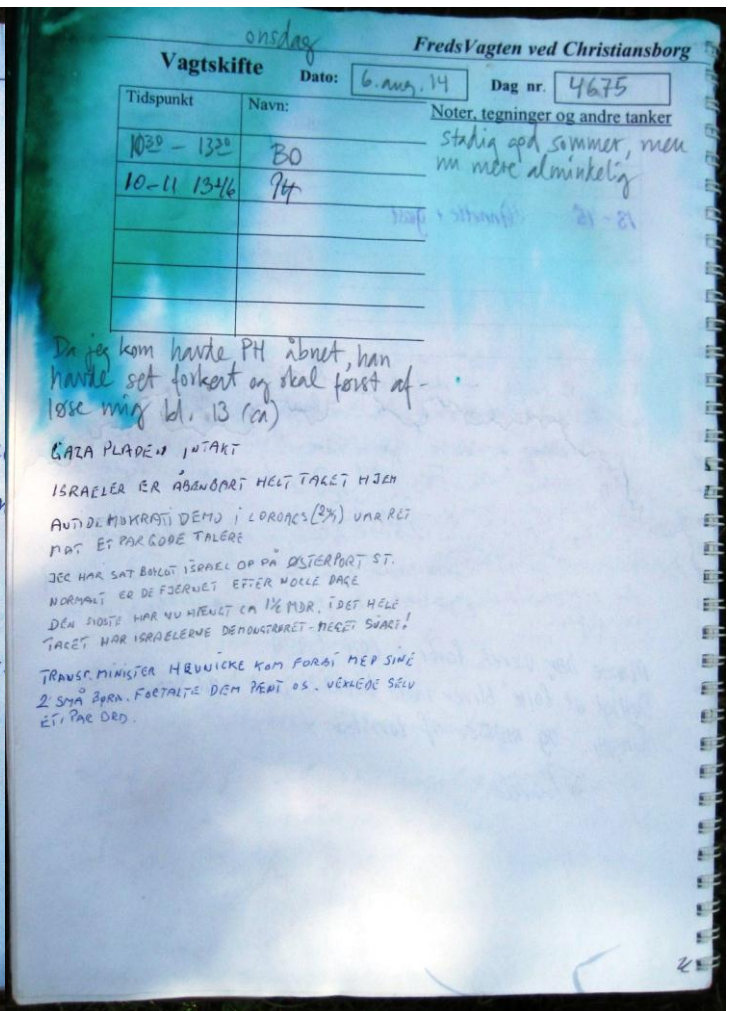 onsdag
FredsVagten ved Christiansborg
Vagtskifte Dato: 6. aug. 14 Dag nr. 4675
Tidspunkt Navn: Noter, tegninger og andre tanker
10³⁰ – 13³⁰ BO
stadig god sommer, men
nu mere alminkelig
10–11 13
Da jeg kom havde PH åbnet, han
havde set forkert og skal først af-
løse mig kl. 13 (ca)
GAZA PLADEN INTAKT
ISRAELER ER ÅBENBART HELT TAGET HJEM
DEMO I
MØT ET PAR GODE TALERE
JEG HAR SAT BOYCOT ISRAEL OP PÅ ØSTERPORT ST.
NORMALT ER DE FJERNET EFTER NOLLE DAGE
DEN SIDSTE HAR NU HÆNGT CA 1½ MDR. I DET HELE
TAGET HAR ISRAELERNE DEMONSTRERET - MEGET SVART!
TRANSP. MINISTER HEUNICKE KOM FORBI MED SINE
2 SMÅ BØRN. FORTALTE DEM PÆNT OS. VEKLEDE SELV
ET PAR ORD.